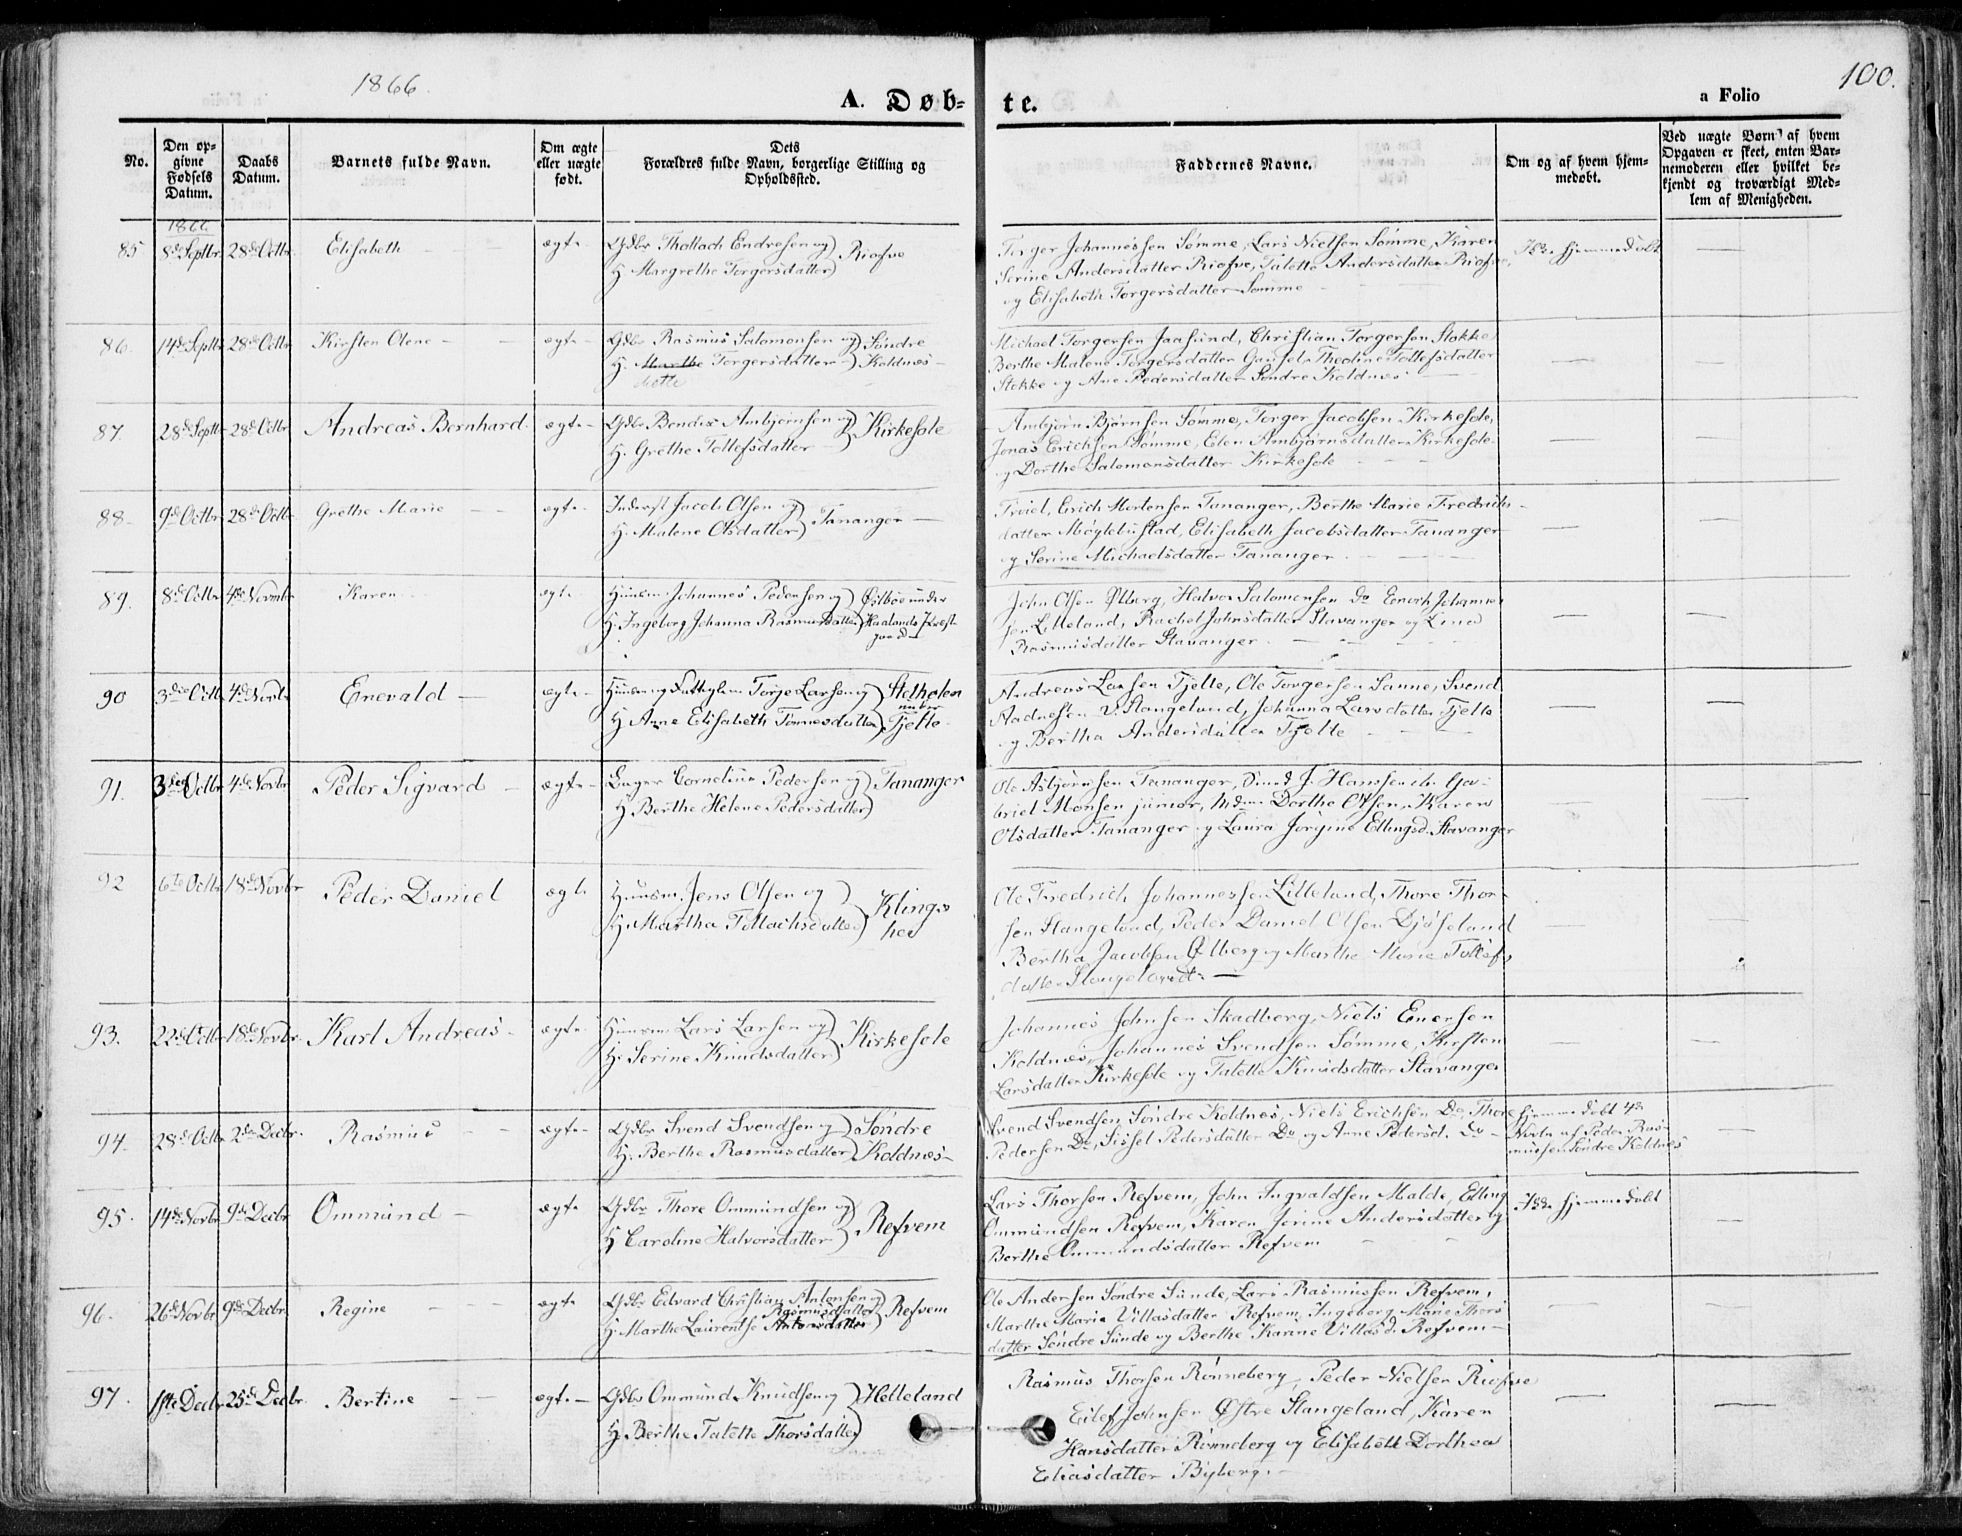 1866.
A. Døb-
te.
a Folio
100.
No.
Den op-
givne
Fødsels
Datum.
Daabs
Datum.
Barnets fulde Navn.
Om ægte
eller uægte
født.
Dets
Forældres fulde Navn, borgerlige Stilling og
Opholdssted.
Faddernes Navne.
Om og af hvem hjem-
medøbt.
Ved uægte Børn af hvem
Opgaven er skeet, enten Bar-
nemoderen eller hvilket be-
kjendt og troværdigt Med-
lem af Menigheden.
1866
85 8de Septbr 28de Octbr Elisabeth ægte Gdbr Thollach Endresen og
H. Margrethe Torgersdatter Riofve
Torger Johannessen Sømme, Lars Nielsen Sømme, Karen
Serine Andersdatter Riofve, Talette Andersdatter Riofve,
og Elisabeth Torgersdatter Sømme
Ikke hjemmedøbt
86. 14de Septbr 28de Octbr Kirsten Olene ægte Gdbr Rasmus Salomonsen og Søndre
H. Marthe Torgersdatter Koldnes
Michael Torgersen Jaasund, Christian Torgersen Stokke
Berthe Malene Torgersdatter Gausel, Theoline Tollefsdatter
Stokke og Ane Pedersdatter Søndre Koldnes
87. 28de Septbr 28de Octbr Andreas Bernhard ægte Gdbr Bendix Ambjørnsen og Kirkesole
H. Grethe Tollefsdatter
Ambjørn Bjørnsen Sømme, Torger Jacobsen Kirkesole,
Jonas Erichsen Sømme, Elen Ambjørnsdatter Kirkesole
og Dorthe Salomonsdatter Kirkesole
88. 9de Octbr 28de Octbr Grethe Marie ægte Inderst Jacob Olsen og
H. Malene Olsdatter Tananger
Erich Mortensen Tananger, Berthe Marie Fredrichs-
datter Møglebustad, Elisabeth Jacobsdatter Tananger
og Serine Michaelsdatter Tananger
89. 8de Octbr 4de Novmbr Karen ægte Huusm. Johannes Pedersen og Østbøe under
H. Ingeborg Johanna Rasmusdatter Haalands Præste
gaard
John Olsen Ølberg, Halvor Salomonsen Do Enoch Johannes
sen Litleland, Rachel Johnsdatter Stavanger og Lina
Rasmusdatter Stavanger
90 3die Octbr 4de Novbr Enevald ægte Huusm og Torje Larsen og Stetholen
under
H. Anne Elisabeth Tønnesdatter Tjelte
Andreas Larsen Tjelte, Ole Torgersen Sanne, Svend
Aadnesen V. Stangeland, Johanna Larsdatter Tjelte
og Bertha Andersdatter Tjelte
91. 3die Octbr 4de Novbr Peder Sigvard ægte Cornelius Pedersen og Tananger
H. Berthe Helene Pedersdatter
Ole Asbjørnsen Tananger, J. Hanssen Ga-
briel Monsen junior, Dorthe Olsen, Karen
Olsdatter Tananger og Laura Jørgine Ellingsd. Stavanger
92 6te Octbr 18de Novbr Peder Daniel ægte Huusm. Jens Olsen og Klinge
H. Martha Tollachsdatter hei
Ole Fredrich Johannessen Litleland, Thore Thor-
sen Stangeland, Peder Daniel Olsen Djøseland
Bertha Jacobsen Ølberg og Marthe Marie Tollefs
datter Stangeland
93. 22de Octbr 18de Novbr Karl Andreas ægte Huusm Lars Larsen og
H. Serine Knudsdatter Kirkesole
Johannes Johnsen Skadberg, Niels Enersen
Koldnes, Johannes Svendsen Sømme, Kirsten
Larsdatter Kirkesole og Talette Knudsdatter Stavanger
94. 28de Octbr 2den Decbr. Rasmus ægte Gdbr Svend Svendsen og Søndre
H. Berthe Rasmusdatter Koldnes
Svend Svendsen Søndre Koldnes, Niels Erichsen Do, Thore
Pedersen Do, Sissel Pedersdatter Do og Anne Pedersd. Do
hjemmedøbt 4de
Novbr af Peder Ras-
mussen Søndre Koldnes
95. 14de Novbr 9de Decbr Ommund ægte Gdbr Thore Ommundsen og
H Caroline Halvorsdatter Refvem
Lars Thorsen Refvem, John Ingvaldsen Malde, Elling
Ommundsen Refvem, Karen Jorine Andersdatter og
Berthe Ommundsdatter Refvem
Ikke hjemmedøbt
96. 26de Novbr 9de Decbr Regine ægte Gdbr Edvard Christian Antonsen og
Rasmusdatter
H. Marthe Laurentse Antonsdatter Refvem
Ole Andersen Søndre Sunde, Lars Rasmussen Refvem,
Marthe Maria Villasdatter Refvem, Ingeborg Marie Thors
datter Søndre Sunde og Berthe Karine Villasd. Refvem
97. 1ste Decbr 25de Decbr Bertine ægte Gdbr Ommund Knudsen og Helleland
H. Berthe Talette Thorsdatter
Rasmus Thorsen Rønneberg, Peder Nielsen Riofve
Eilef Johnsen Østre Stangeland, Karen
Hansdatter Rønneberg og Elisabeth Dorthea
Eliasdatter Byberg.